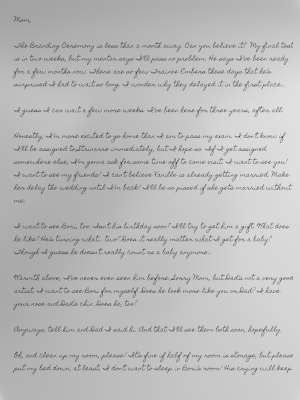 Mom,
The Branding Ceremony is less than a month away. Can you believe it? My final test
is in two weeks, but my mentor says I'll pass no problem. He says I've been ready
for a few months now. There are so few Trainee Embers these days that he's
surprised I had to wait so long. I wonder why they delayed it in the first place...
I guess I can wait a few more weeks. I've been here for three years, after all.
Honestly, I'm more excited to go home than I am to pass my exam. I don't know if
I'll be assigned to immediately, but I hope so. If I get assigned
somewhere else, I'm gonna ask for some time off to come visit. I want to see you!
I want to see my friends! I can't believe is already getting married. Make
her delay the wedding until I'm back! I'll be so pissed if she gets married without
me.
I want to see Bori, too. Isn't his birthday soon? I'll try to get him a gift. What does
he like? He's turning what... two? Does it really matter what I get for a baby?
Though I guess he doesn't really count as a baby anymore...
Warmth above, I've never even seen him before. Sorry Mom, but Dad's not a very good
artist. I want to see Bori for myself. Does he look more like you or Dad? I have
your nose and Dad's chin. Does he, too?
Anyways, tell him and Dad I said hi. And that I'll see them both soon, hopefully.
Oh, and clean up my room, please! It's fine if half of my room is storage, but please
put my bed down, at least. I don't want to sleep in Bori's room! His crying will keep